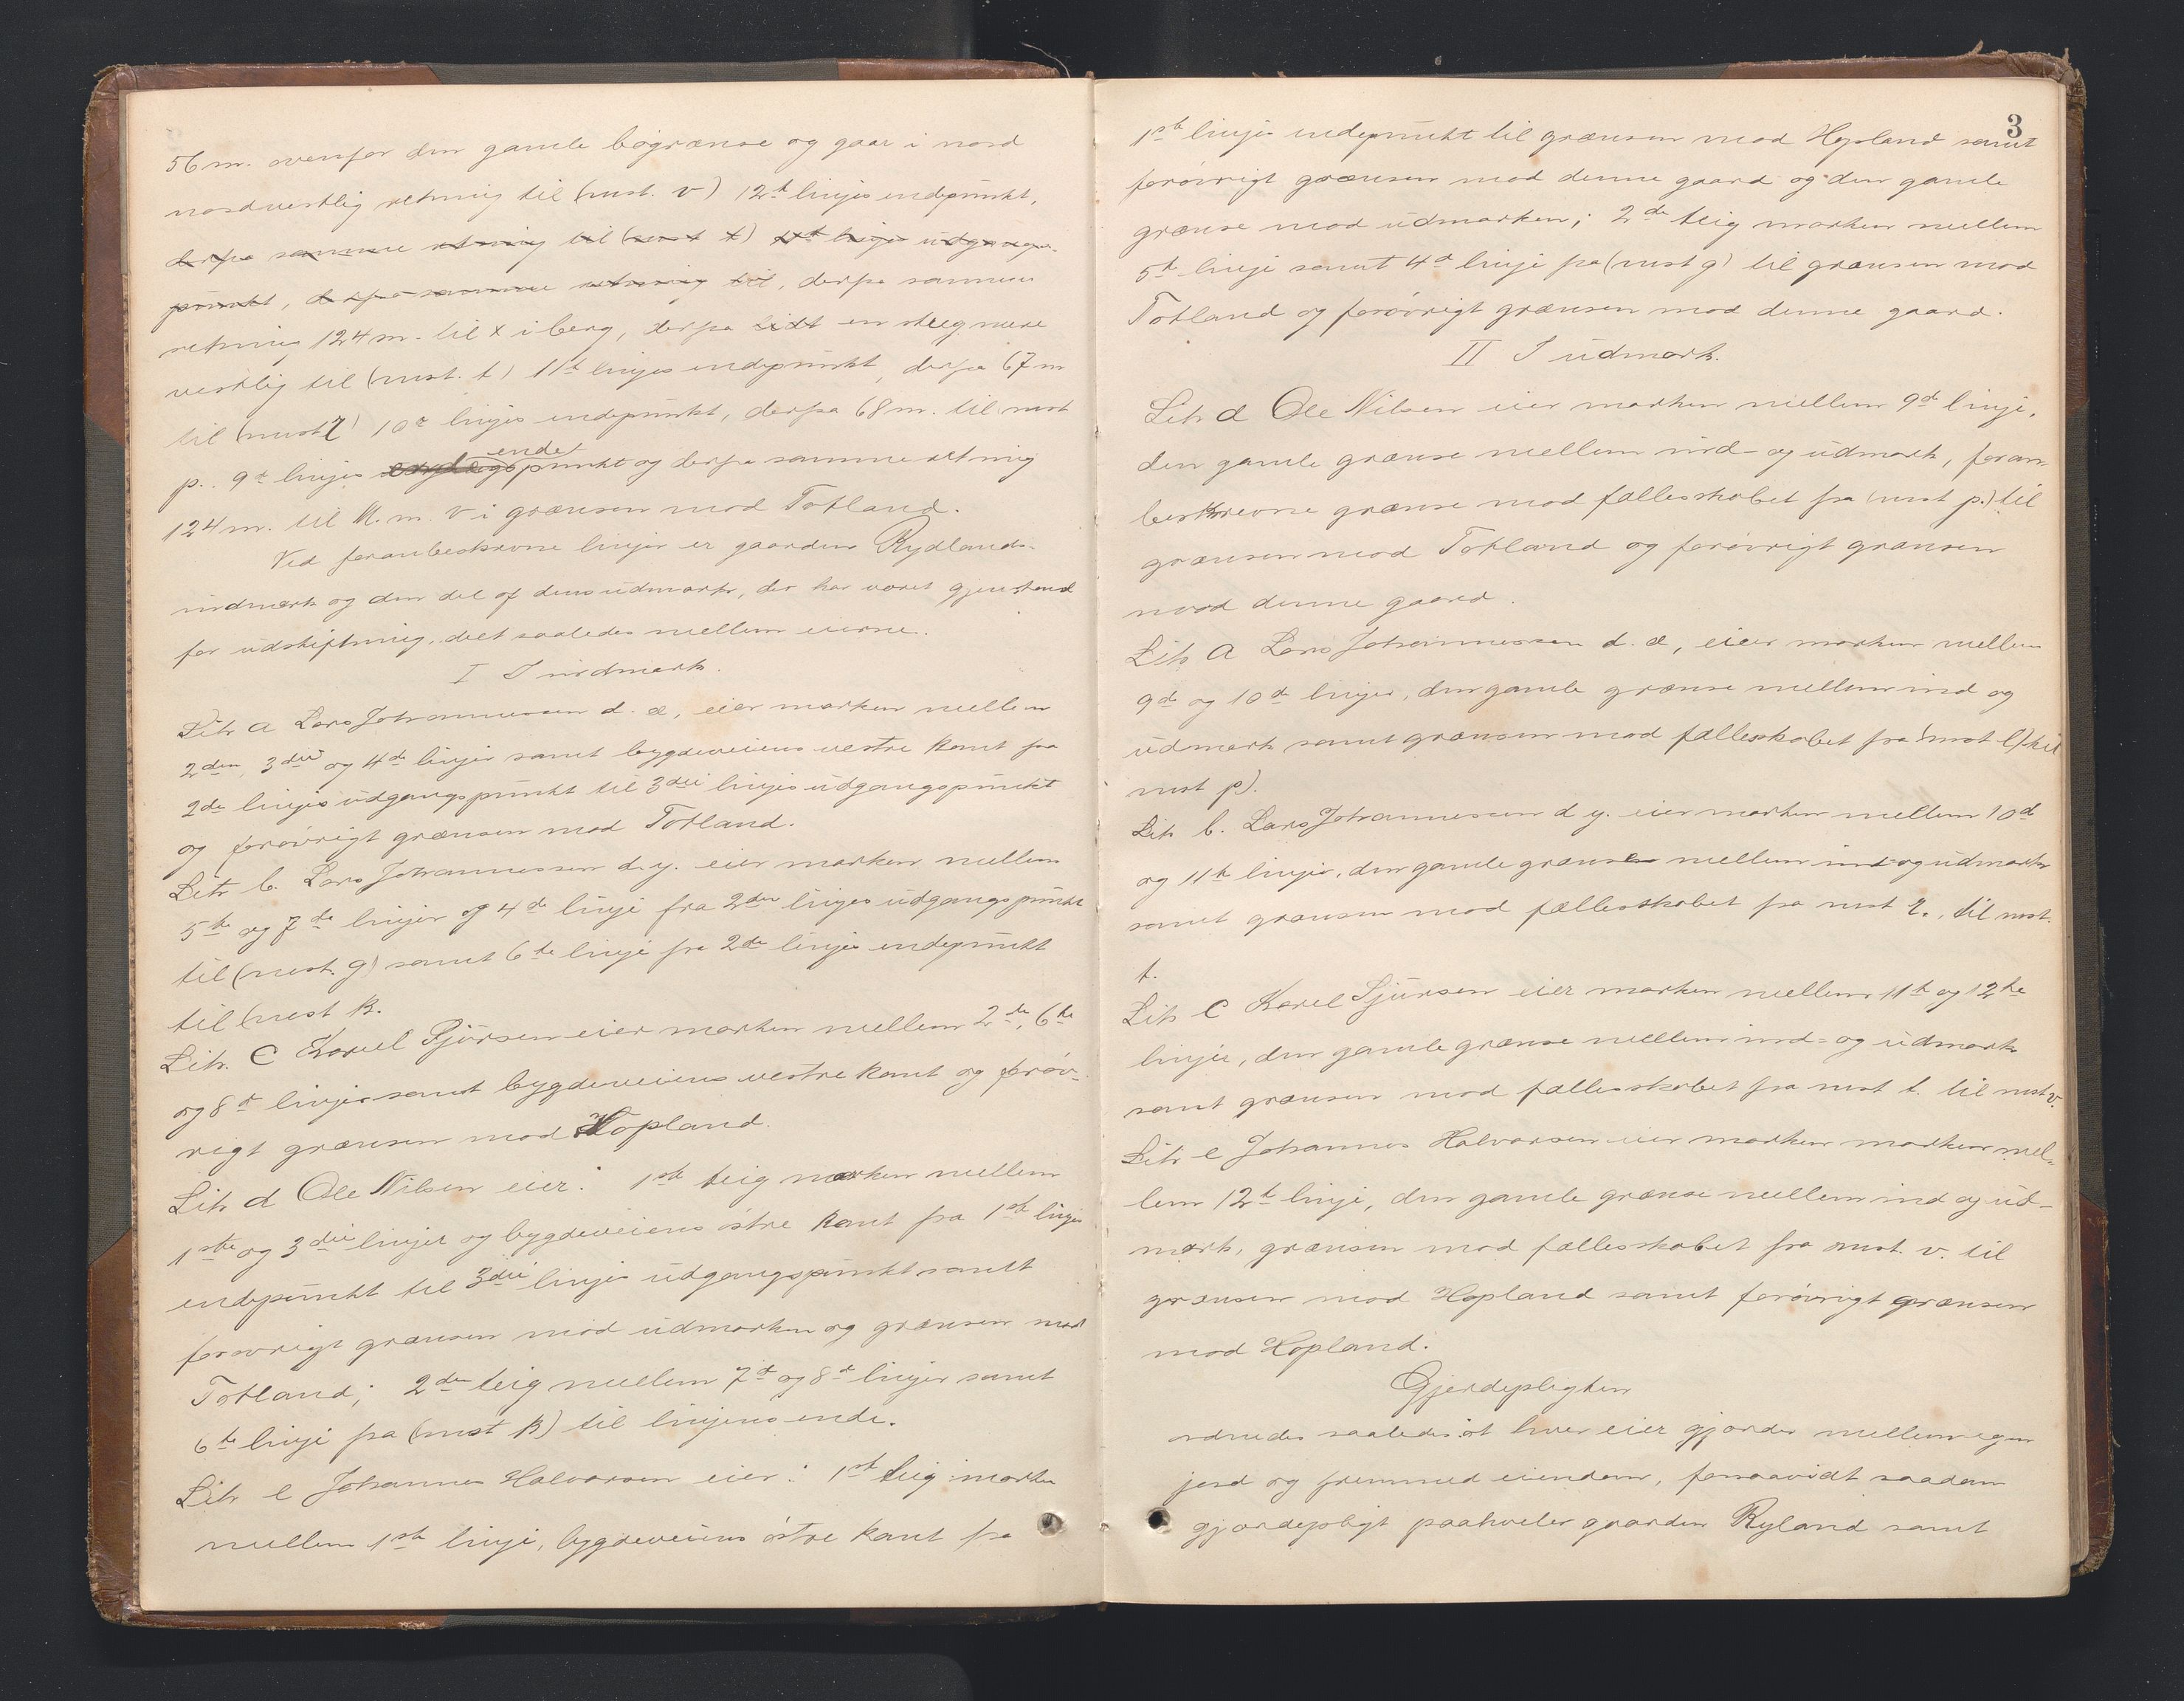 56 m. ovenfor den gamle bøgrænse og gaar i nord
nordvestlig retning til (nust. v) 12te linjes endepunkt,
derfra samme retning til (nust t) linjes udgangs-
punkt, derfra samme retning til, derfra samme
retning 124 m. til x i berg, derfra lidt en streg mere
vestlig til (nust. t) 11te linjes endepunkt, derfra 67 m
til (nust r) 10de linjes endepunkt, derfra 68 m. til (nust
p. 9de linjes endepunkt og derfra samme retning
124 m. til M. m. V i grænsen mod Totland.
Ved foranbeskrevne linjer er gaarden Rydlands
indmark og den del af dens udmark, der har været gjenstand
for udskiftning, delt saaledes mellem eierne.
I I indmark.
Litr a Lars Johannessen d. æ, eier marken mellem
2den, 3die og 4de linjer samt bygdeveiens vestre kant fra
2de linjes udgangspunkt til 3die linjes udgangspunkt
og forøvrigt grænsen mod Totland.
Litr b. Lars Johannessen d. y. eier marken mellem
5te og 7de linjer og 4de linje fra 2den linjes udgangspunkt
til (nust. g) samt 6te linje fra 2de linjes endepunkt
til (nust k.
Litr. C Karel Sjursen eier marken mellem 2de, 6te
og 8de linjer samt bygdeveiens vestre kant og forøv-
rigt grænsen mod Hopland.
Litr d Ole Nilsen eier: 1ste teig marken mellem
1ste og 3die linjer og bygdeveiens østre kant fra 1ste linjes
endepunkt til 3die linjes udgangspunkt samt
forøvrigt grænsen mod udmarken og grænsen mod
Totland; 2den teig mellem 7de og 8de linjer samt
6te linje fra (nust k) til linjens ende.
Litr e Johannes Halvorsen eier: 1ste teig marken
mellem 1ste linje, bygdeveiens østre kant fra
3
1ste linjes endepunkt til grænsen mod Hopland samt
forøvrigt grænsen mod denne gaard og den gamle
grænse mod udmarken; 2de teig marken mellem
5te linje samt 4de linje fra (nust g) til grænsen mod
Totland og forøvrigt grænsen mod denne gaard.
II I udmark.
Litr d Ole Nilsen eier marken mellem 9de linje,
den gamle grænse mellem ind- og udmark, foran-
beskrevne grænse mod fællesskabet fra (nust p.) til
grænsen mod Totland og forøvrigt grænsen
mod denne gaard.
Litr a Lars Johannessen d. æ, eier marken mellem
9de og 10de linjer, den gamle grænse mellem ind og
udmark samt grænsen mod fællesskabet fra (nust r) til
nust p).
Litr b. Lars Johannessen d y. eier marken mellem 10de
og 11te linjer, den gamle grænse mellem ind og udmark
samt grænsen mod fællesskabet fra nust r., til nust.
t.
Litr C Karel Sjursen eier marken mellem 11te og 12te
linjer, den gamle grænse mellem ind- og udmark
samt grænsen mod fællesskabet fra nust t. til nust v.
Litr e Johannes Halvorsen eier marken marken mel-
lem 12te linje, den gamle grænse mellem ind og ud-
mark, grænsen mod fællesskabet fra nust. v. til
grænsen mod Hopland samt forøvrigt grænsen
mod Hopland.
Gjerdepligten
ordnedes saaledes at hver eier gjærder mellem egen
jord og fremmed eiendom, forsaavidt saadan
gjærdepligt paahviler gaarden Ryland samt